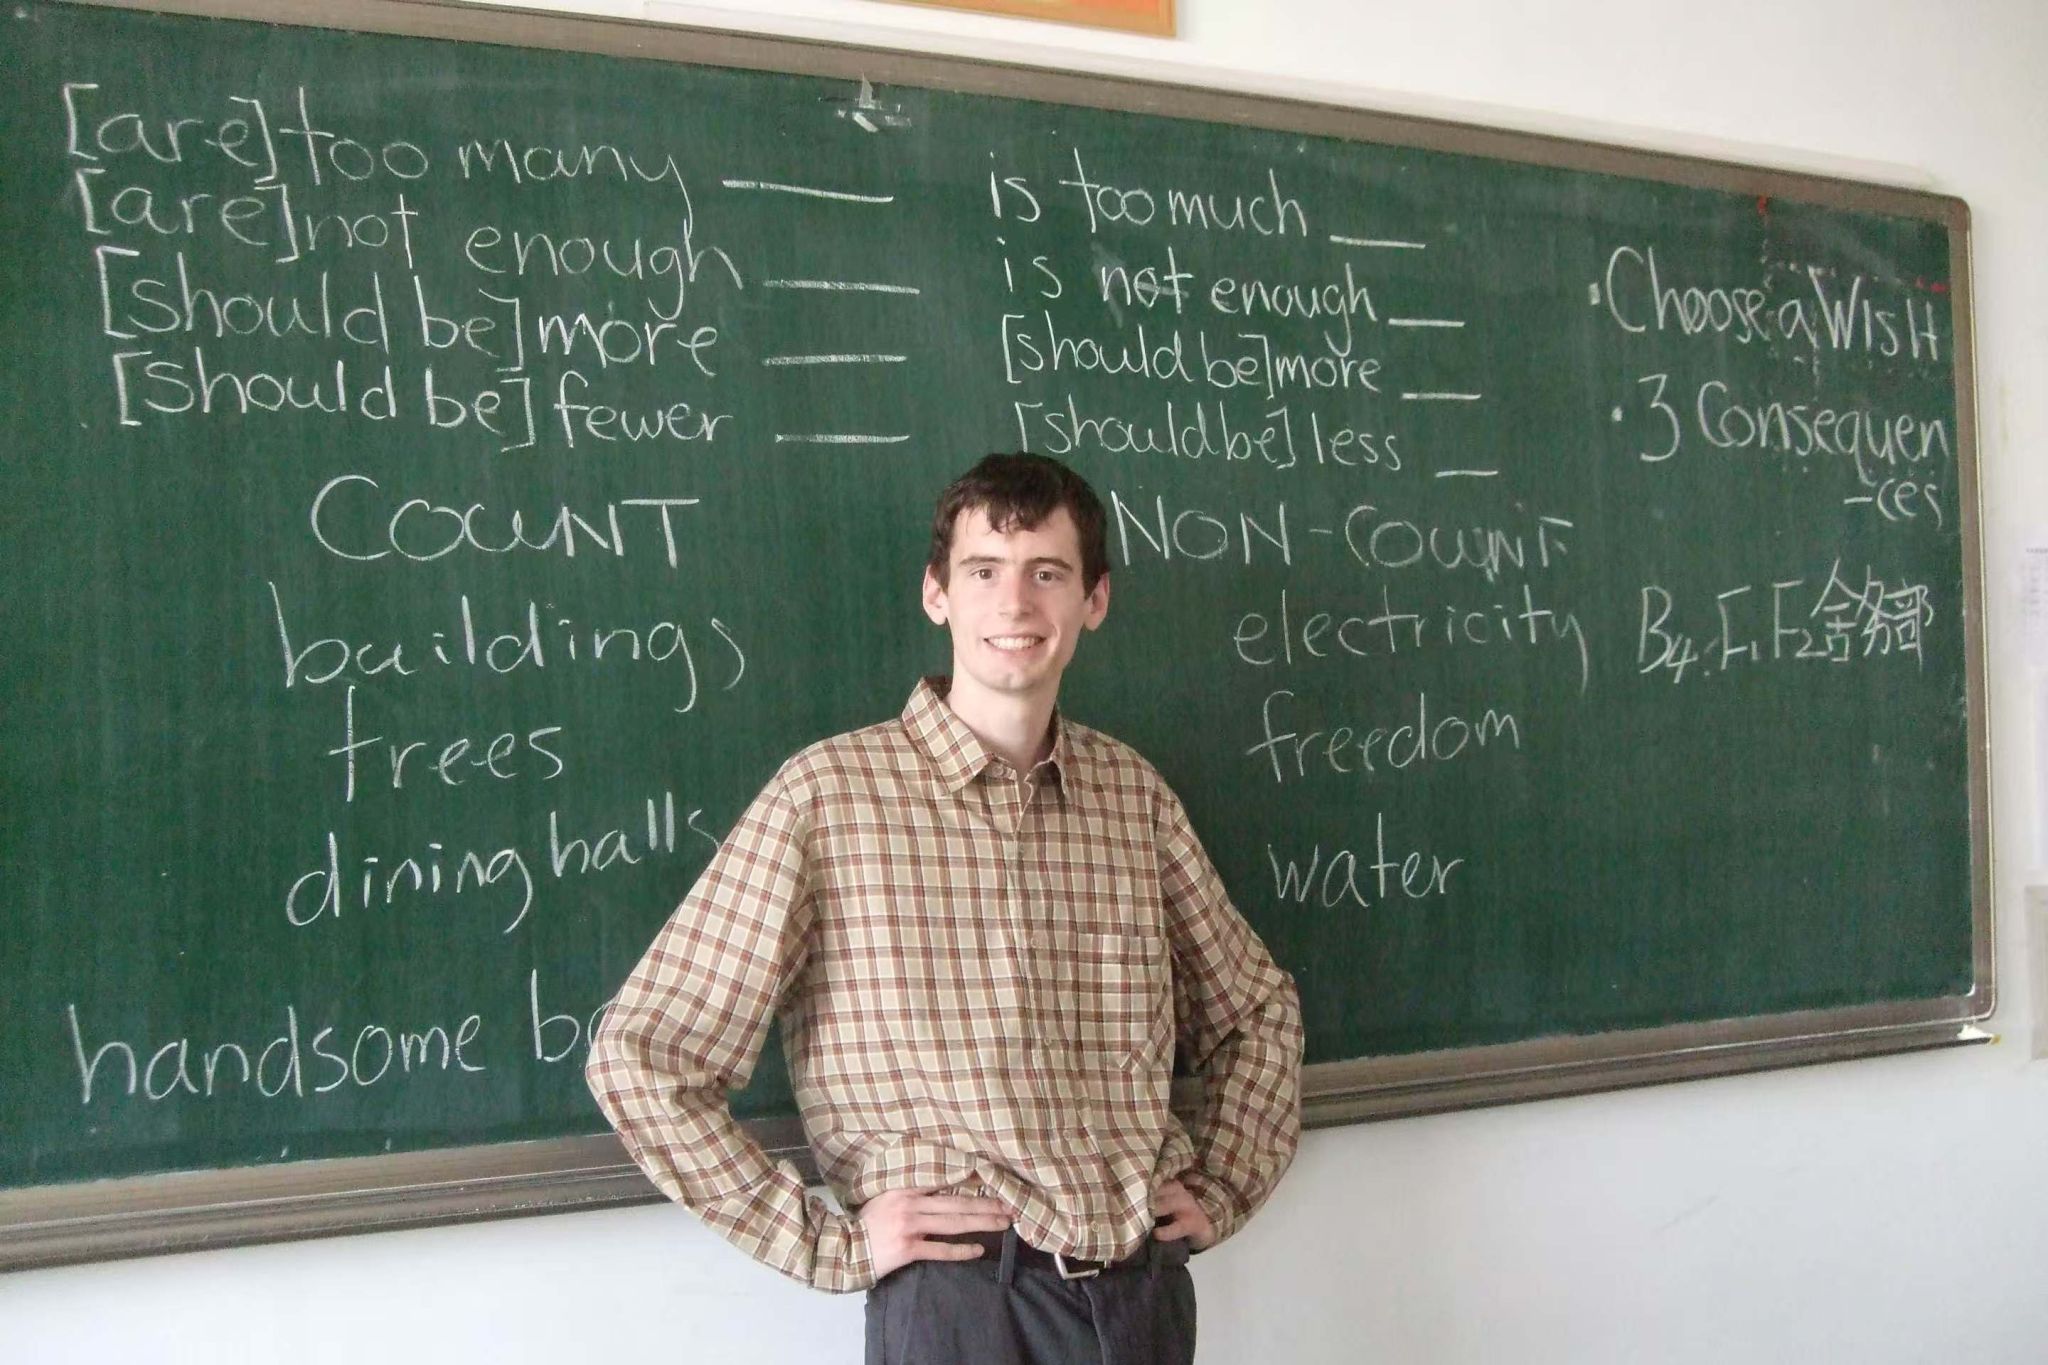 [are] too many ____
[are] not enough ____
[should be] more ____
[should be] fewer ____
COUNT
buildings
trees
dining halls
handsome
is too much ___
is not enough ___
[should be] more ___
[should be] less __
NON-COUNT
electricity
freedom
water
• Choose a WisH
• 3 Consequen
-ces
B4. F1 F2 舍务部